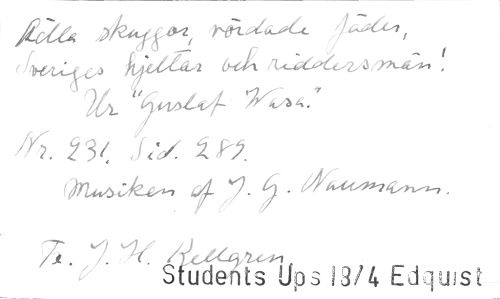 Ädla skuggor, vördade fäder,
Sveriges hjeltar och riddersmän!
Ur "Gustaf Wasa."
Nr. 231. Sid. 289.
Musiken af J. G. Naumann.
Te. J. H. Kellgren
Students Ups 18/4 Edquist